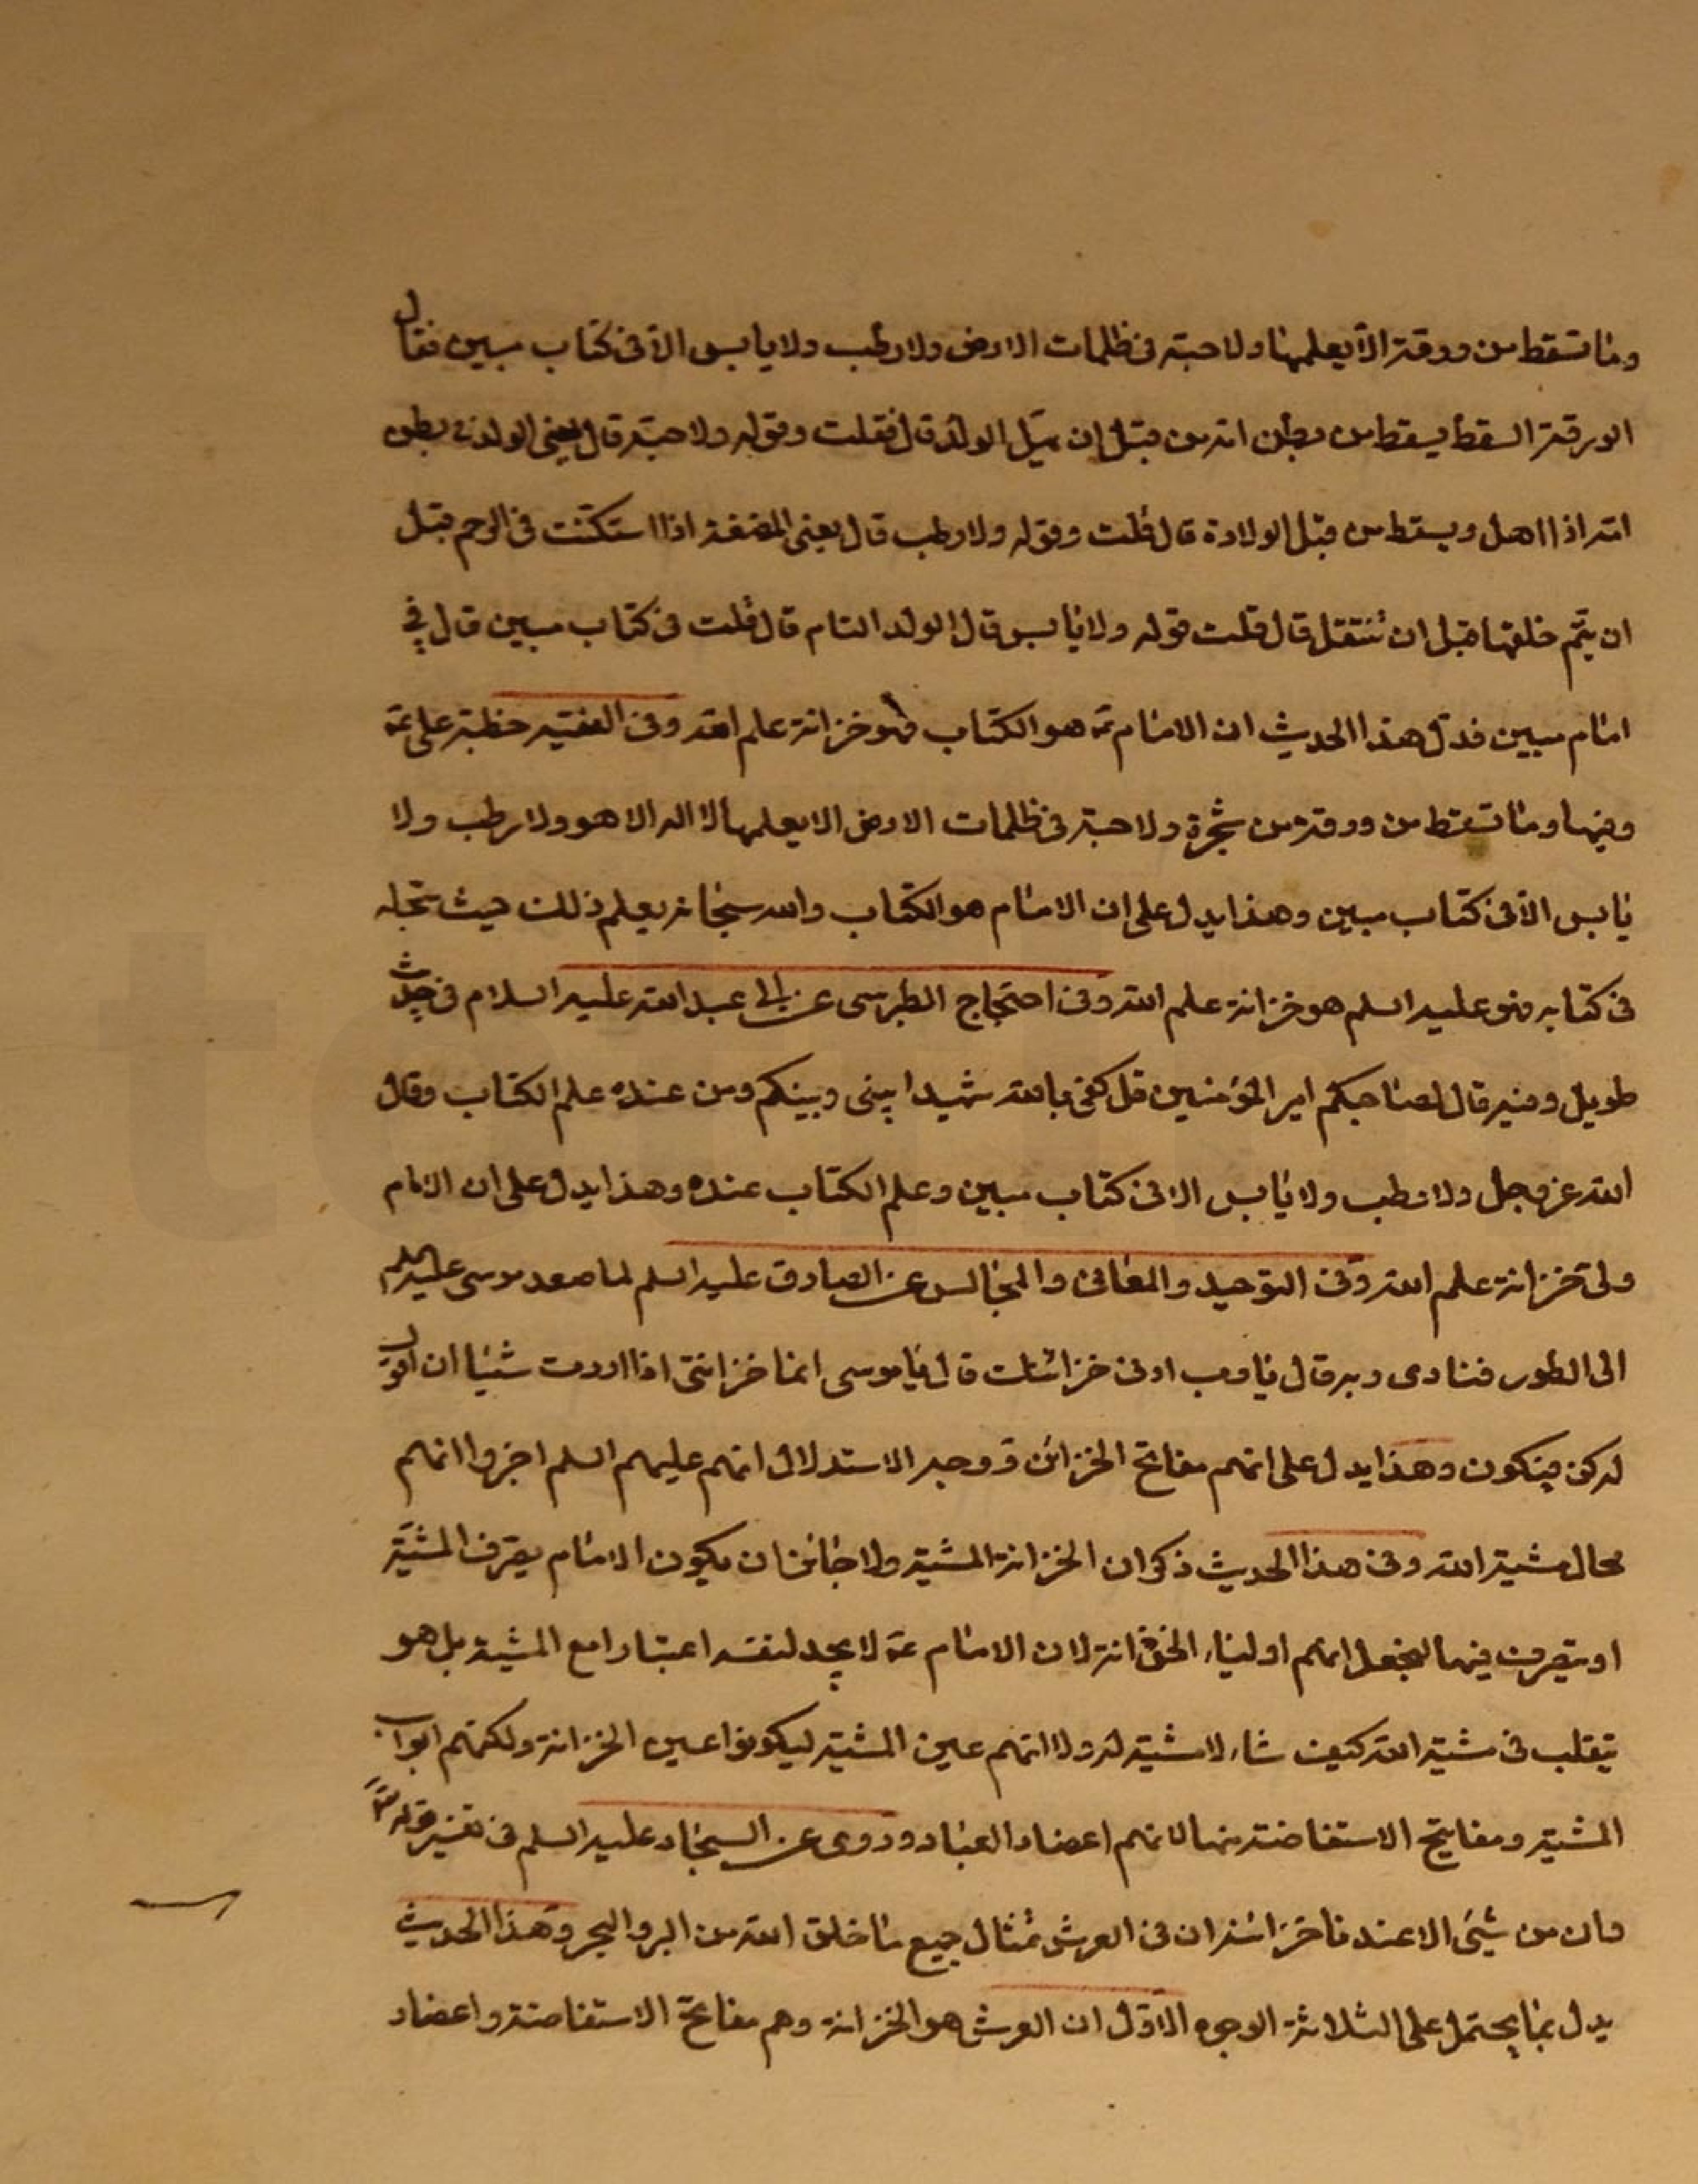 وما تسقط من ورقة الا يعلمها ولا حبة فى ظلمات الارض ولا رطب ولا يابس الا فى كتاب مبين فقال
الورقة السقط يسقط من بطن امه من قبل ان يهل الولد قال فقلت وقوله ولا حبة قال يعنى الولد فى بطن
امه اذا اهل ويسقط من قبل الولادة قال قلت وقوله ولا رطب قال يعنى المضغة اذا استكنت فى الرحم قبل
ان يتم خلقها قبل ان تنتقل قال قلت قوله ولا يابس قال الولد التام قال قلت فى كتاب مبين قال فى
امام مبين فدل هذا الحديث ان الامام ع هو الكتاب فهو خزانة علم الله وفى الفقيه خطبة على ع
وفيها وما تسقط من ورقة من شجرة ولا حبة فى ظلمات الارض الا يعلمها لا اله الا هو ولا رطب ولا
يابس الا فى كتاب مبين وهذا يدل على ان الامام هو الكتاب والله سبحانه يعلم ذلك حيث
فى كتابه فهو عليه السلم هو خزانة علم الله وفى احتجاج الطبرسى عن ابى عبد الله عليه السلام فى حديث
طويل وفيه قال لصاحبكم امير المؤمنين قل كفى بالله شهيدا بينى وبينكم ومن عنده علم الكتاب وقال
الله عز وجل ولا رطب ولا يابس الا فى كتاب مبين وعلم الكتاب عنده وهذا يدل على ان الامام
ولى خزانة علم الله وفى التوحيد والمعانى والمجالس عن الصادق عليه السلم لما صعد موسى عليه السلم
الى الطور فنادى ربه قال يا رب ارنى خزائنك قال يا موسى انما خزائنى اذا اردت شيئا ان اقول
له كن فيكون وهذا يدل على انهم مفاتح الخزائن ووجه الاستدلال انهم عليهم السلم اخبروا انهم
محال مشية الله وفى هذا الحديث ذكر ان الخزانة المشية ولا جائز ان يكون الامام يصرف المشية
او يتصرف فيها ليجعل انهم اولياء الخزانة لان الامام ع لا يجد لنفسه اعتبارا مع المشية بل هو
يتقلب فى مشية الله كيف شاء لا مشية له ولا انهم عين المشية ليكونوا عين الخزانة ولكنهم ابواب
المشية ومفاتيح الاستفاضة منها لانهم اعضاد العباد وروى عن السجاد عليه السلم فى تفسير قوله تعالى
وان من شيئ الا عندنا خزائنه ان فى العرش تمثال جميع ما خلق الله من البر والبحر وهذا الحديث
يدل بما يحتمل على الثلاثة الوجوه الاول ان العرش هو الخزانة وهم مفاتح الاستفاضة واعضاد